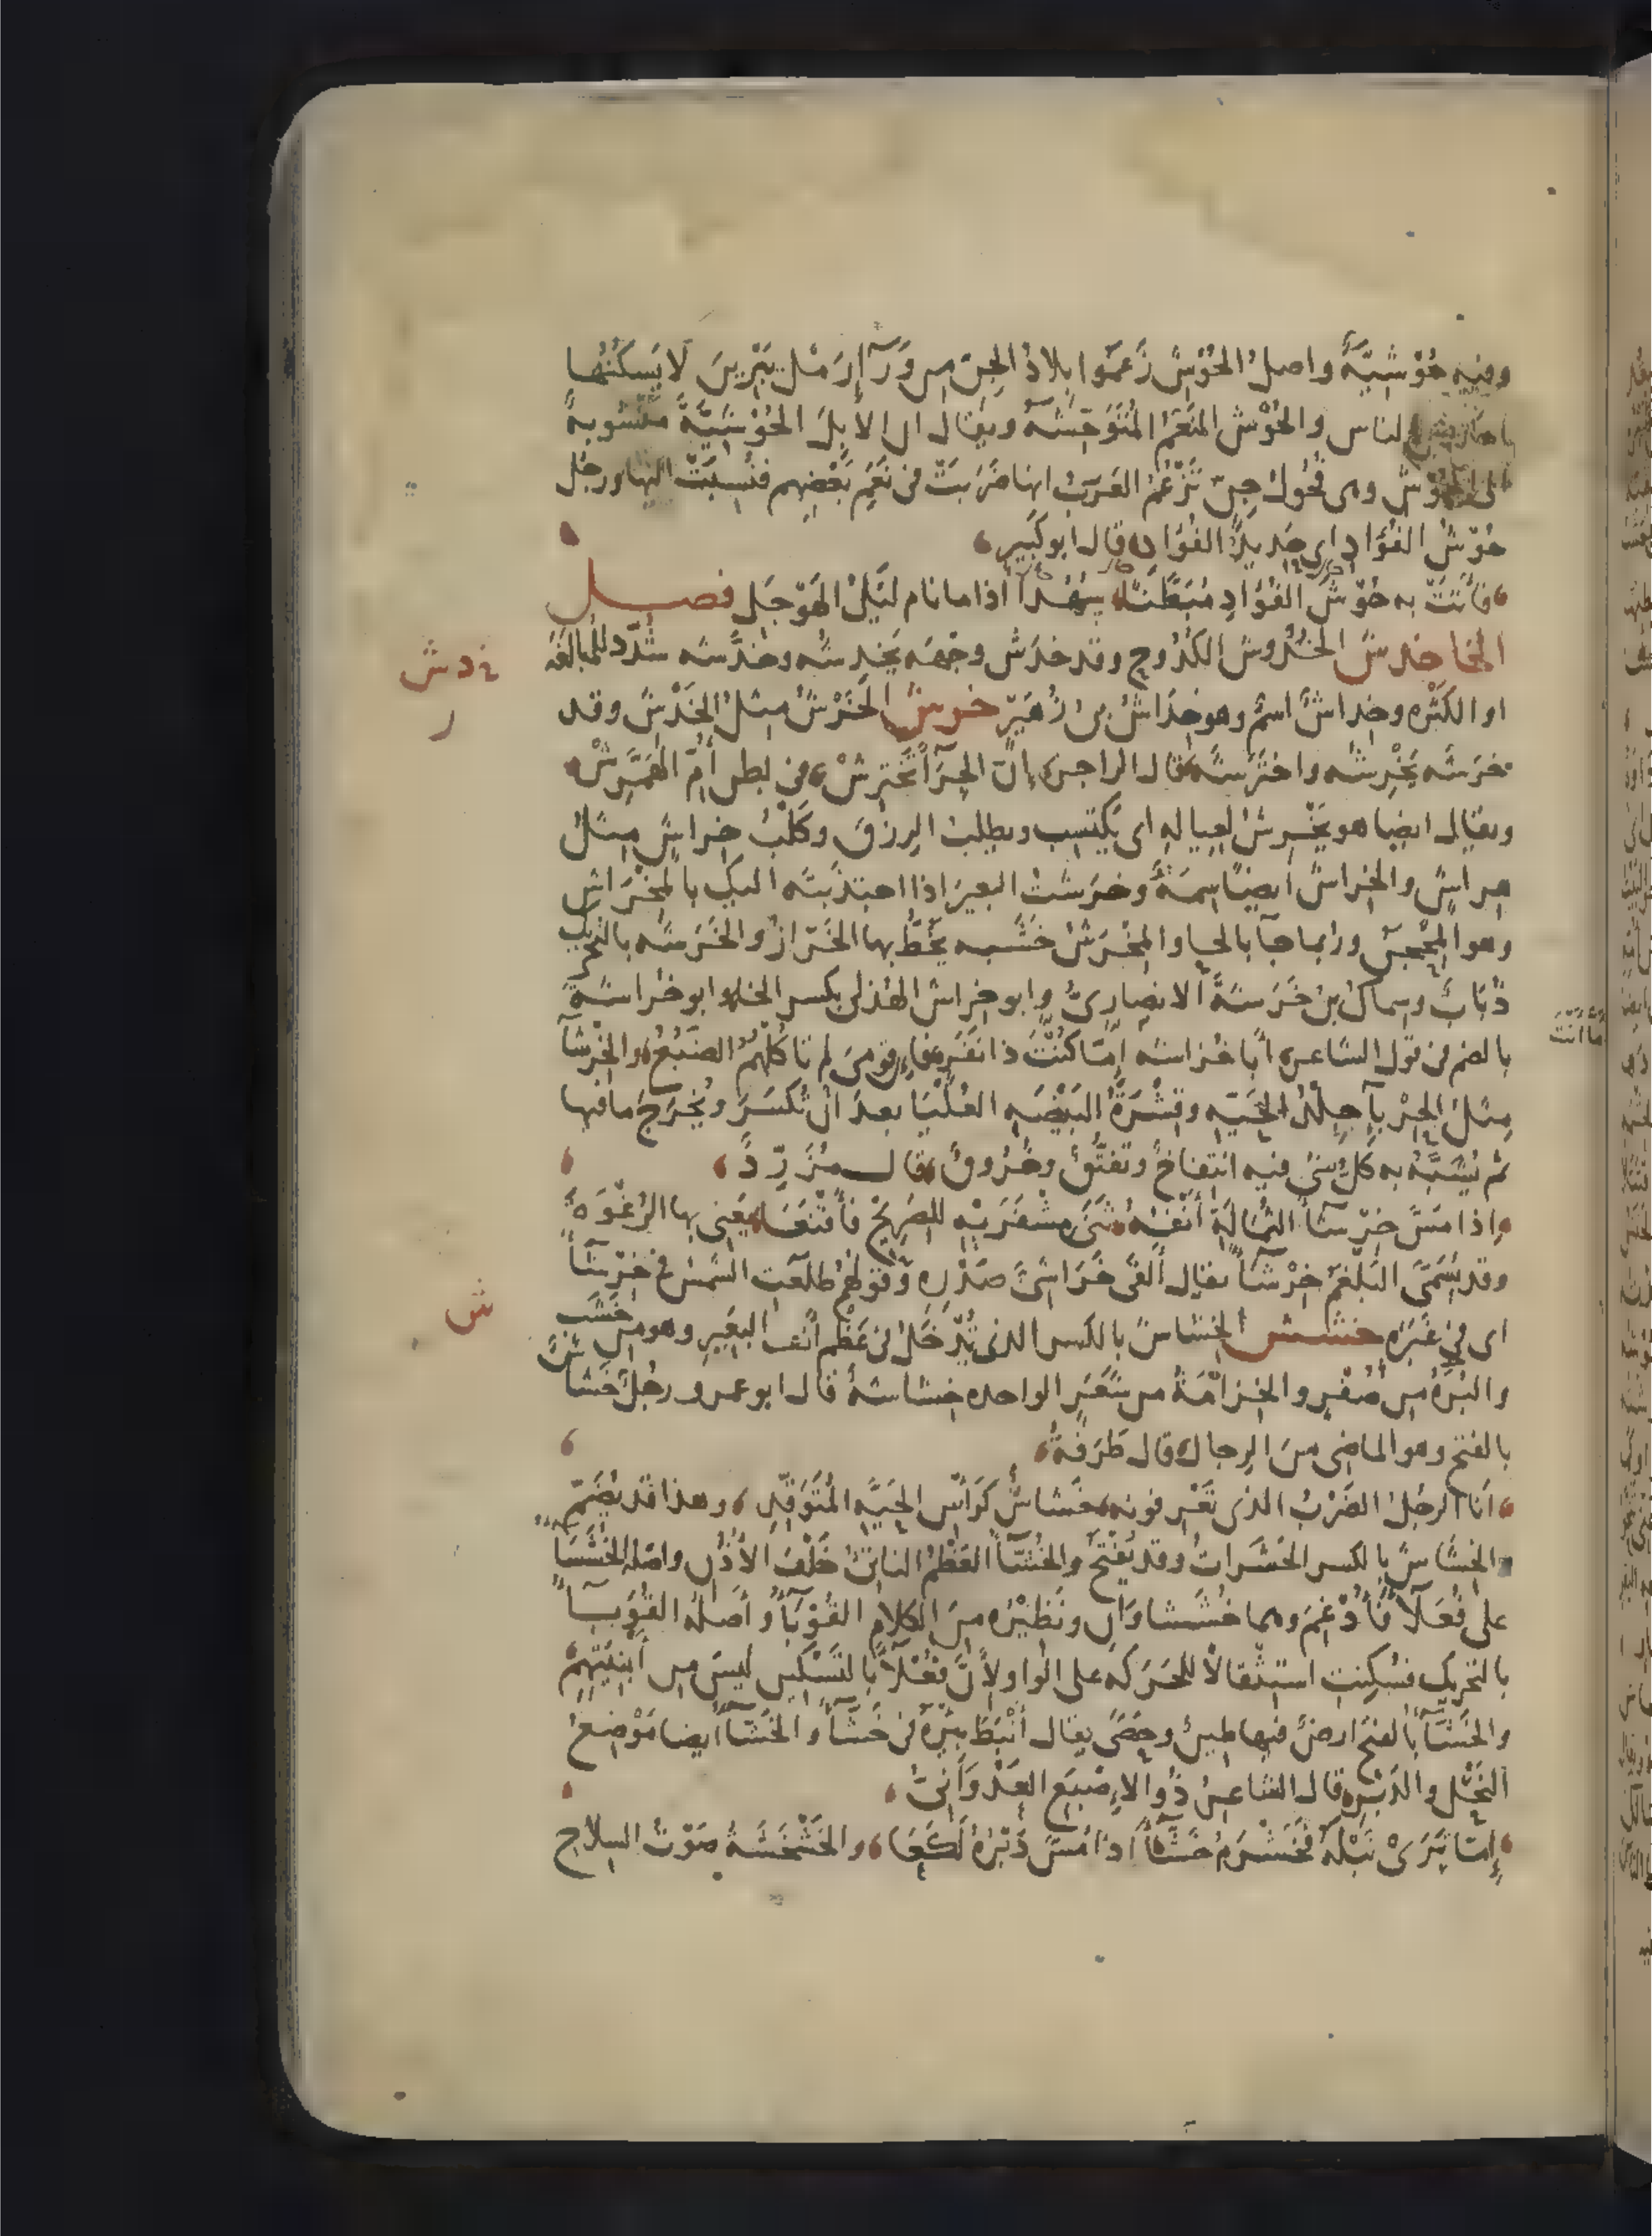 وفيه حُوْشِيَّةٌ واصلُ الحُوْشِ زَعَمُوا بِلادُ الجِنِّ مِن وَرَآءِ رَمْلِ يَبْرِيْنَ لَا يَسكُنُها
احد من الناس والحُوْش النَعَمُ المُتَوَحِّشَةُ ويقال ان الابِلَ الحُوْشِيَّةَ مَنْسُوبةٌ
الى الحُوْشِ وهى فُحُولُ جِنٍّ تَزْعُمُ العَرَبُ انها ضَرَبَتْ فى نَعَمِ بَعْضِهِم فنُسِبَتْ اليها ورجُل
حُوْشُ الفُؤَادِ اى حَدِيدُ الفُؤَادِ قال ابو كَبِيرٍ
فأَتَتْ به حُوْشَ الفُؤَادِ مُبَطَّنًا سُهُدًا اذا ما نام لَيْلُ الهَوْجَلِ فصل
الخا خدش الخُدُوشُ الكُدُوحُ وقد خَدَش وَجْهَه يَخْدِشُه وخَدَّشه شُدِّد للمبالغة
او الكَثْره وخِدَاشٌ اسمٌ وهو خِدَاشُ بنُ زُهَيْرٍ خرش الخَرْشُ مِثلُ الخَدْشِ وقد
خَرَشَه يَخْرِشُه واخْتَرَشَه قال الراجز إنّ الجِرَآءَ تَخْتَرِشْ فى بطن أُمِّ الهَمَّرِشْ
ويقال ايضا هو يَخْرِشُ لعِيالِهِ اى يَكْتَسِب ويطلبُ الرِزْقَ وكَلْبُ خِراشٍ مِثلُ
هِراشٍ والخِراشُ ايضًا سِمَةٌ وخَرَشتُ البعيرَ اذا اجتذبتَه اليك بالمِخْرَاشِ
وهو المِحْجَنُ وربما جآء بالحا والمِخْرَشُ خَشَبه يَخُطُّ بها الخَرّازُ والخَرَشَه بالتحريك
ذُبَابَةٌ وسِماكُ بنُ خَرَشَةَ الانصارِىُّ وابو خِراشٍ الهُذلى بكسر الخا وابو خُراشةَ
بالضم فى قول الشاعر أَبا خُراشةَ إمّا كُنْتَ ذا نَفَرٍ فإنّ قومىَ لم تاكُلْهُمُ الضَبُعُ والخِرْشآءُ
ما أَنْتَ
مِثلُ الحِرْبآءِ جِلْدُ الحَيَّه وقِشْرَةُ البَيْضَه العُلْيَا بعد ان تُكْسَرَ ويُخْرَجَ ما فيها
ثم يُشَبَّهُ به كلُّ شىءٍ فيه انْتِفاخٌ وتفَتُّقٌ وخُرُوقٌ قال مُزَرِّدٌ
وإذا مَسَّ خِرْشآءَ الثُمَالَةِ أَنْفُهُ ثَنَى مِشْفَرَيْهِ للصَرِيحِ فأَقْنَعَا يَعْنى بها الرُغْوَةَ
وقد يُسَمَّى البَلْغَمُ خِرْشآءً يقال أَلْقَى خَرَاشِىَّ صَدْرِه وقولُهُم طلَعَتِ الشمسُ فى خِرْشآءَ
اى فى غَبَرَةٍ خشش الخِشاشُ بالكسر الذى يُدْخَلُ فى عَظْمِ أَنْفِ البَعِيرِ وهو من خَشَب
والبُرَةُ مِن صُفْرٍ والخِزامَةُ من شَعَرٍ الواحده خِشاشةٌ قال ابو عمرو رجُلٌ خَشاشٌ
بالفتح وهو الماضى مِنَ الرِجال قال طَرَفَةُ
أَنا الرجُلُ الضَرْبُ الذى تَعْرِفونه خَشاشٌ كرَأْسِ الحَيَّةِ المُتَوَقِّدِ وهذا قد يُضَمُّ
والخِشاشُ بالكسر الحَشَراتُ وقد يُفْتَحُ والخُشّآءُ العَظْمُ الناتئُ خَلْفَ الأُذُنِ واصلُه الخُشَشَآءُ
على فُعَلآءَ فأُدْغِمَ وهما خُشَشاوَانِ ونَظِيْرُه مِنَ الكلامِ القُوْبَآءُ وأَصلُه القُوَبآءُ
بالتحريك فسُكِّنتِ استِثْقالاً للحَرَكَه على الواو لأَنَّ فُعْلآءَ بالتَسْكينِ لَيسَ مِن أَبْنِيَتِهِمْ
والخَشّآءُ بالفتح ارضٌ فيها طينٌ وحَصًى يقال أَنْبَطَ بِئْرَهُ فى خَشّآءَ والخَشّآءُ ايضا مَوْضِعُ
النَحْلِ والدَبْرِ قال الشاعرُ ذُو الإِصْبَعِ العَدْوَانِىُّ
إمّا تَرَىْ نَبْلَهُ فخَشْرَمُ خَشّآءَ اذا مُسَّ دَبْرُهُ لَكَعَا والخَشْخَشَةُ صَوْتُ السِلاحِ
خ د ش
ر
ش